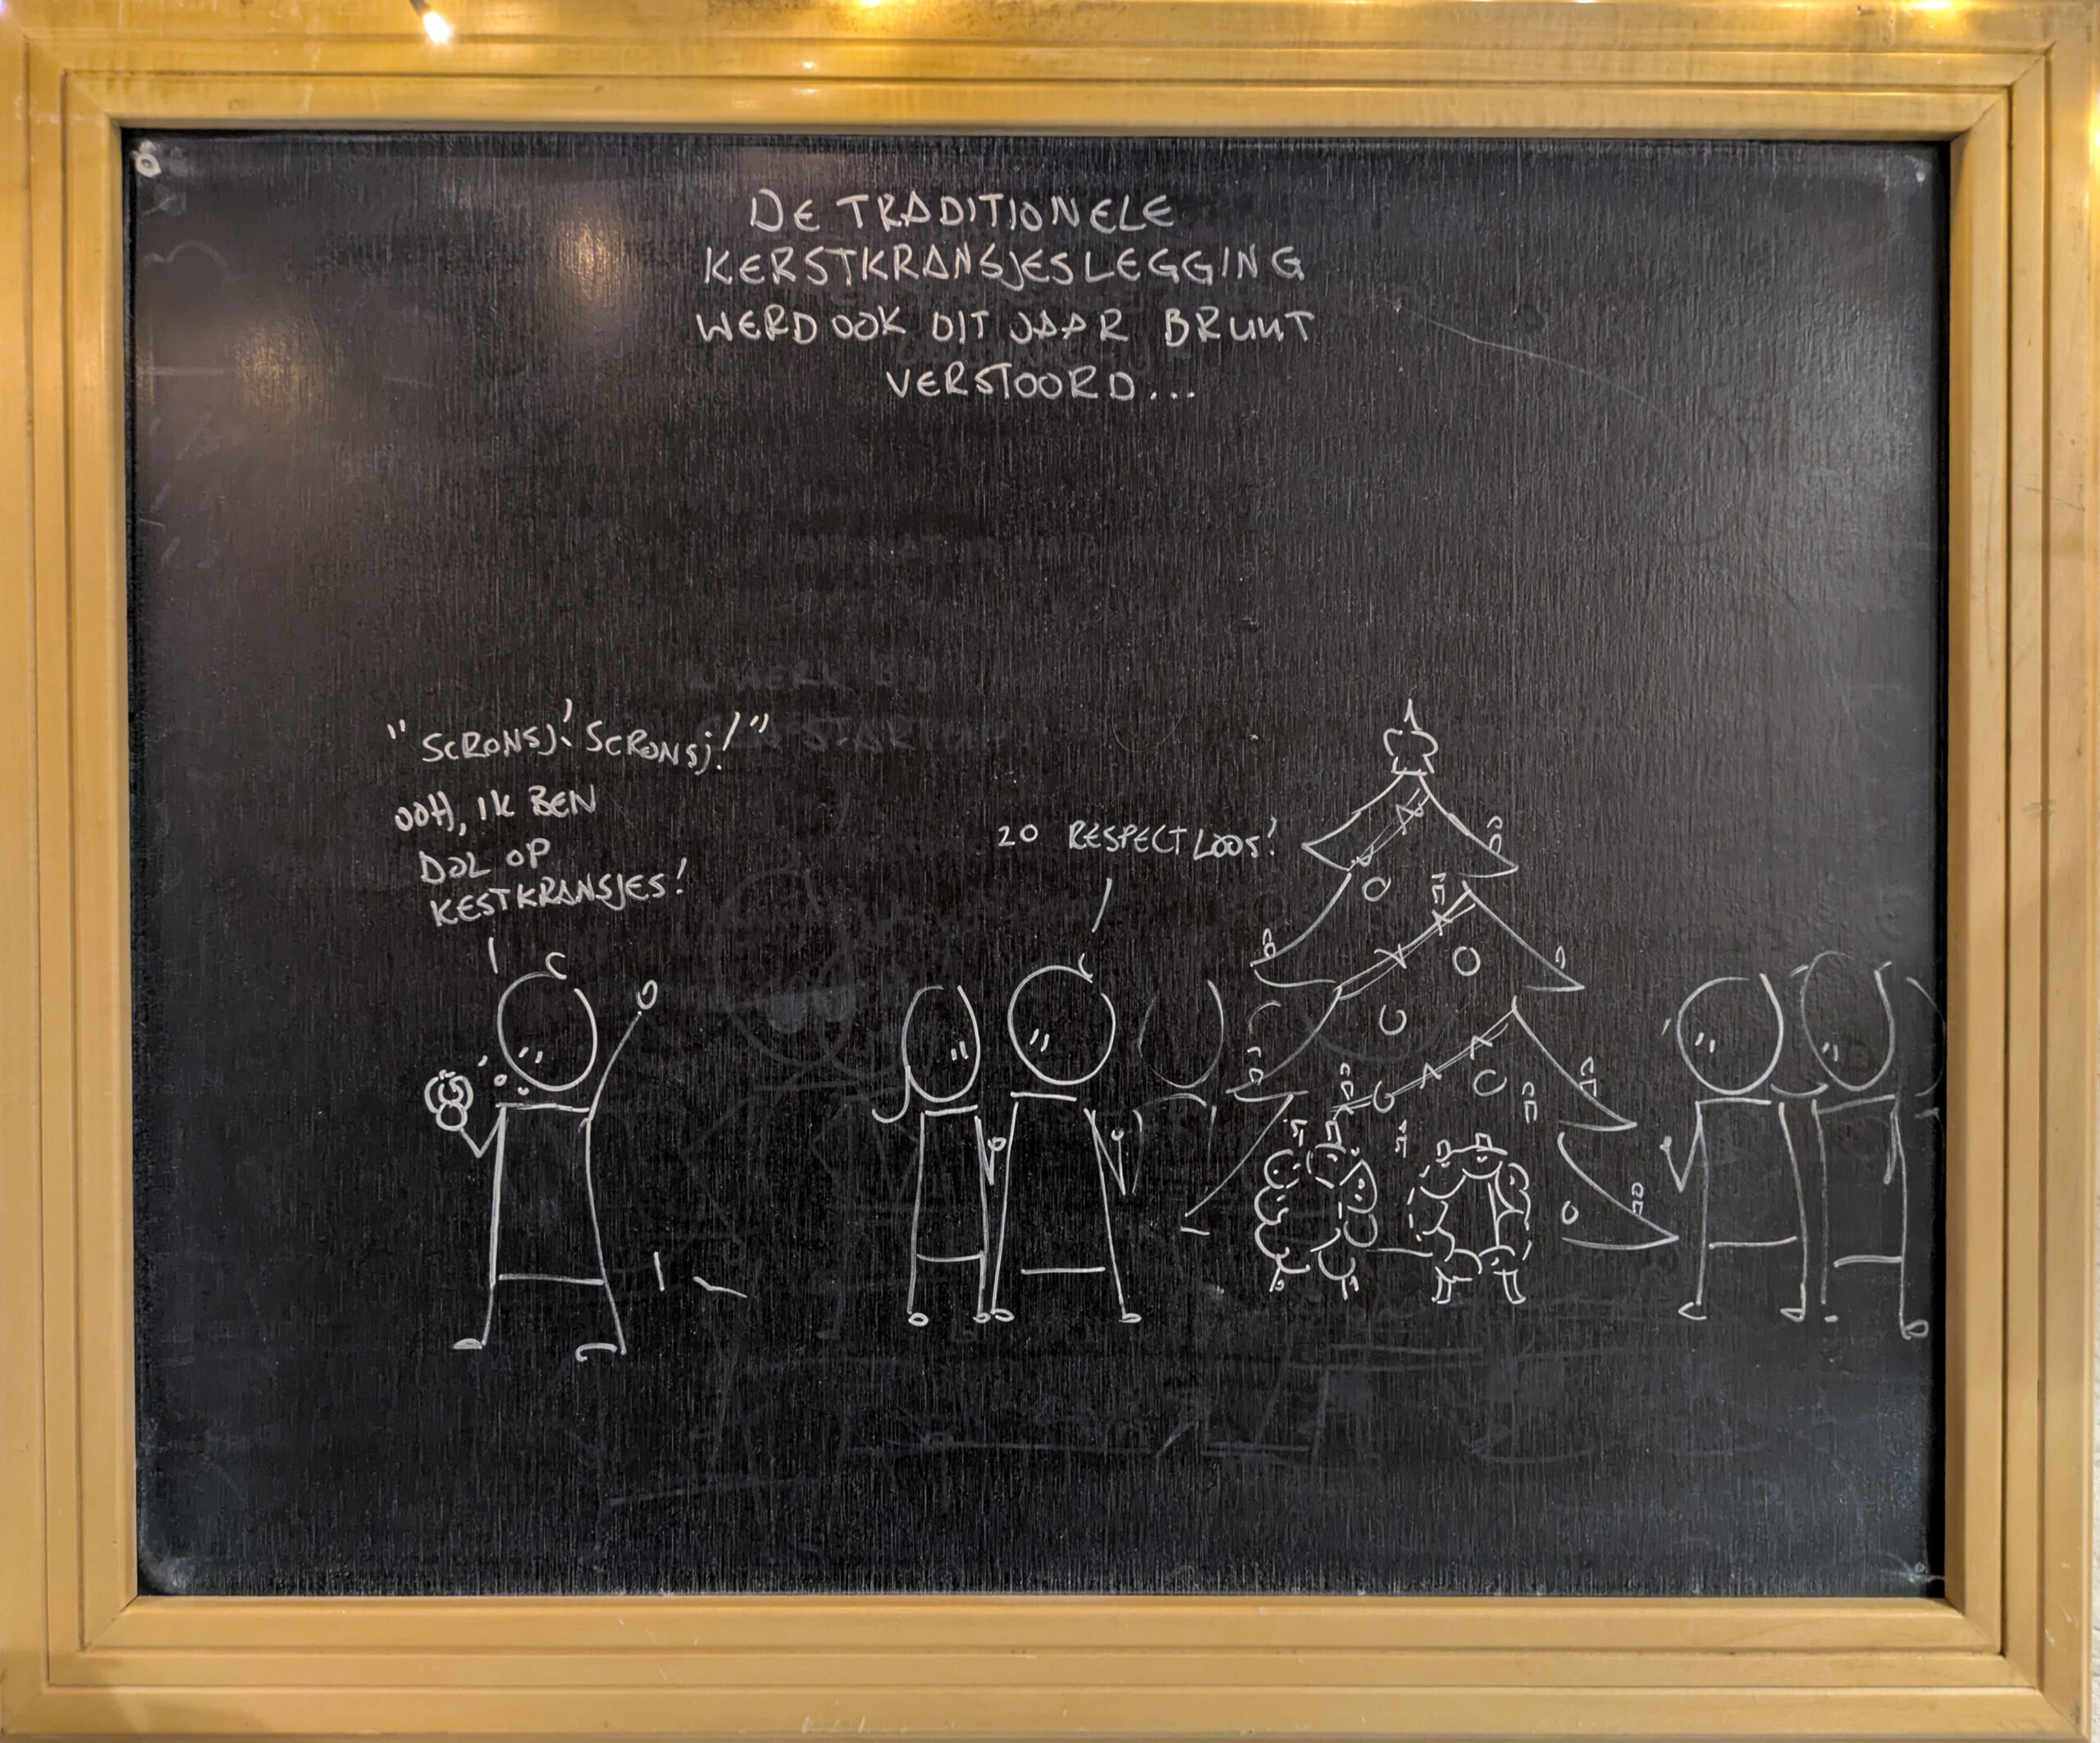 DE TRADITIONELE
KERSTKRANSJESLEGGING
WERD OOK DIT JAAR BRUUT
VERSTOORD...
"SCRONSJ! SCRONSJ!"
OOH, IK BEN
DOL OP
KESTKRANSJES!
ZO RESPECTLOOS!